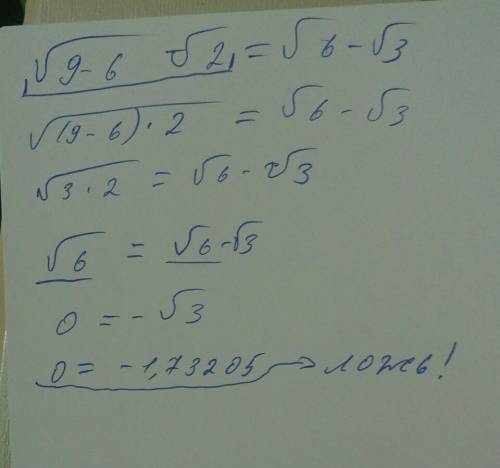 √9-6 √2 = √6 - √3
√(9-6)·2 = √6 - √3
√3·2 = √6 - √3
√6 = √6-√3
0 = -√3
0 = -1,73205 → ложь!